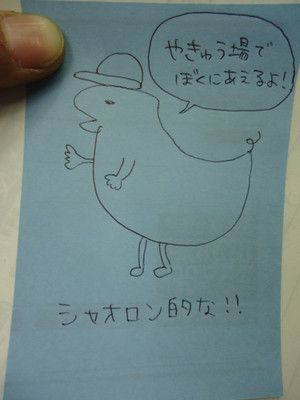 やきゅう場で
ぼくにあえるよ!
シャオロン的な!!